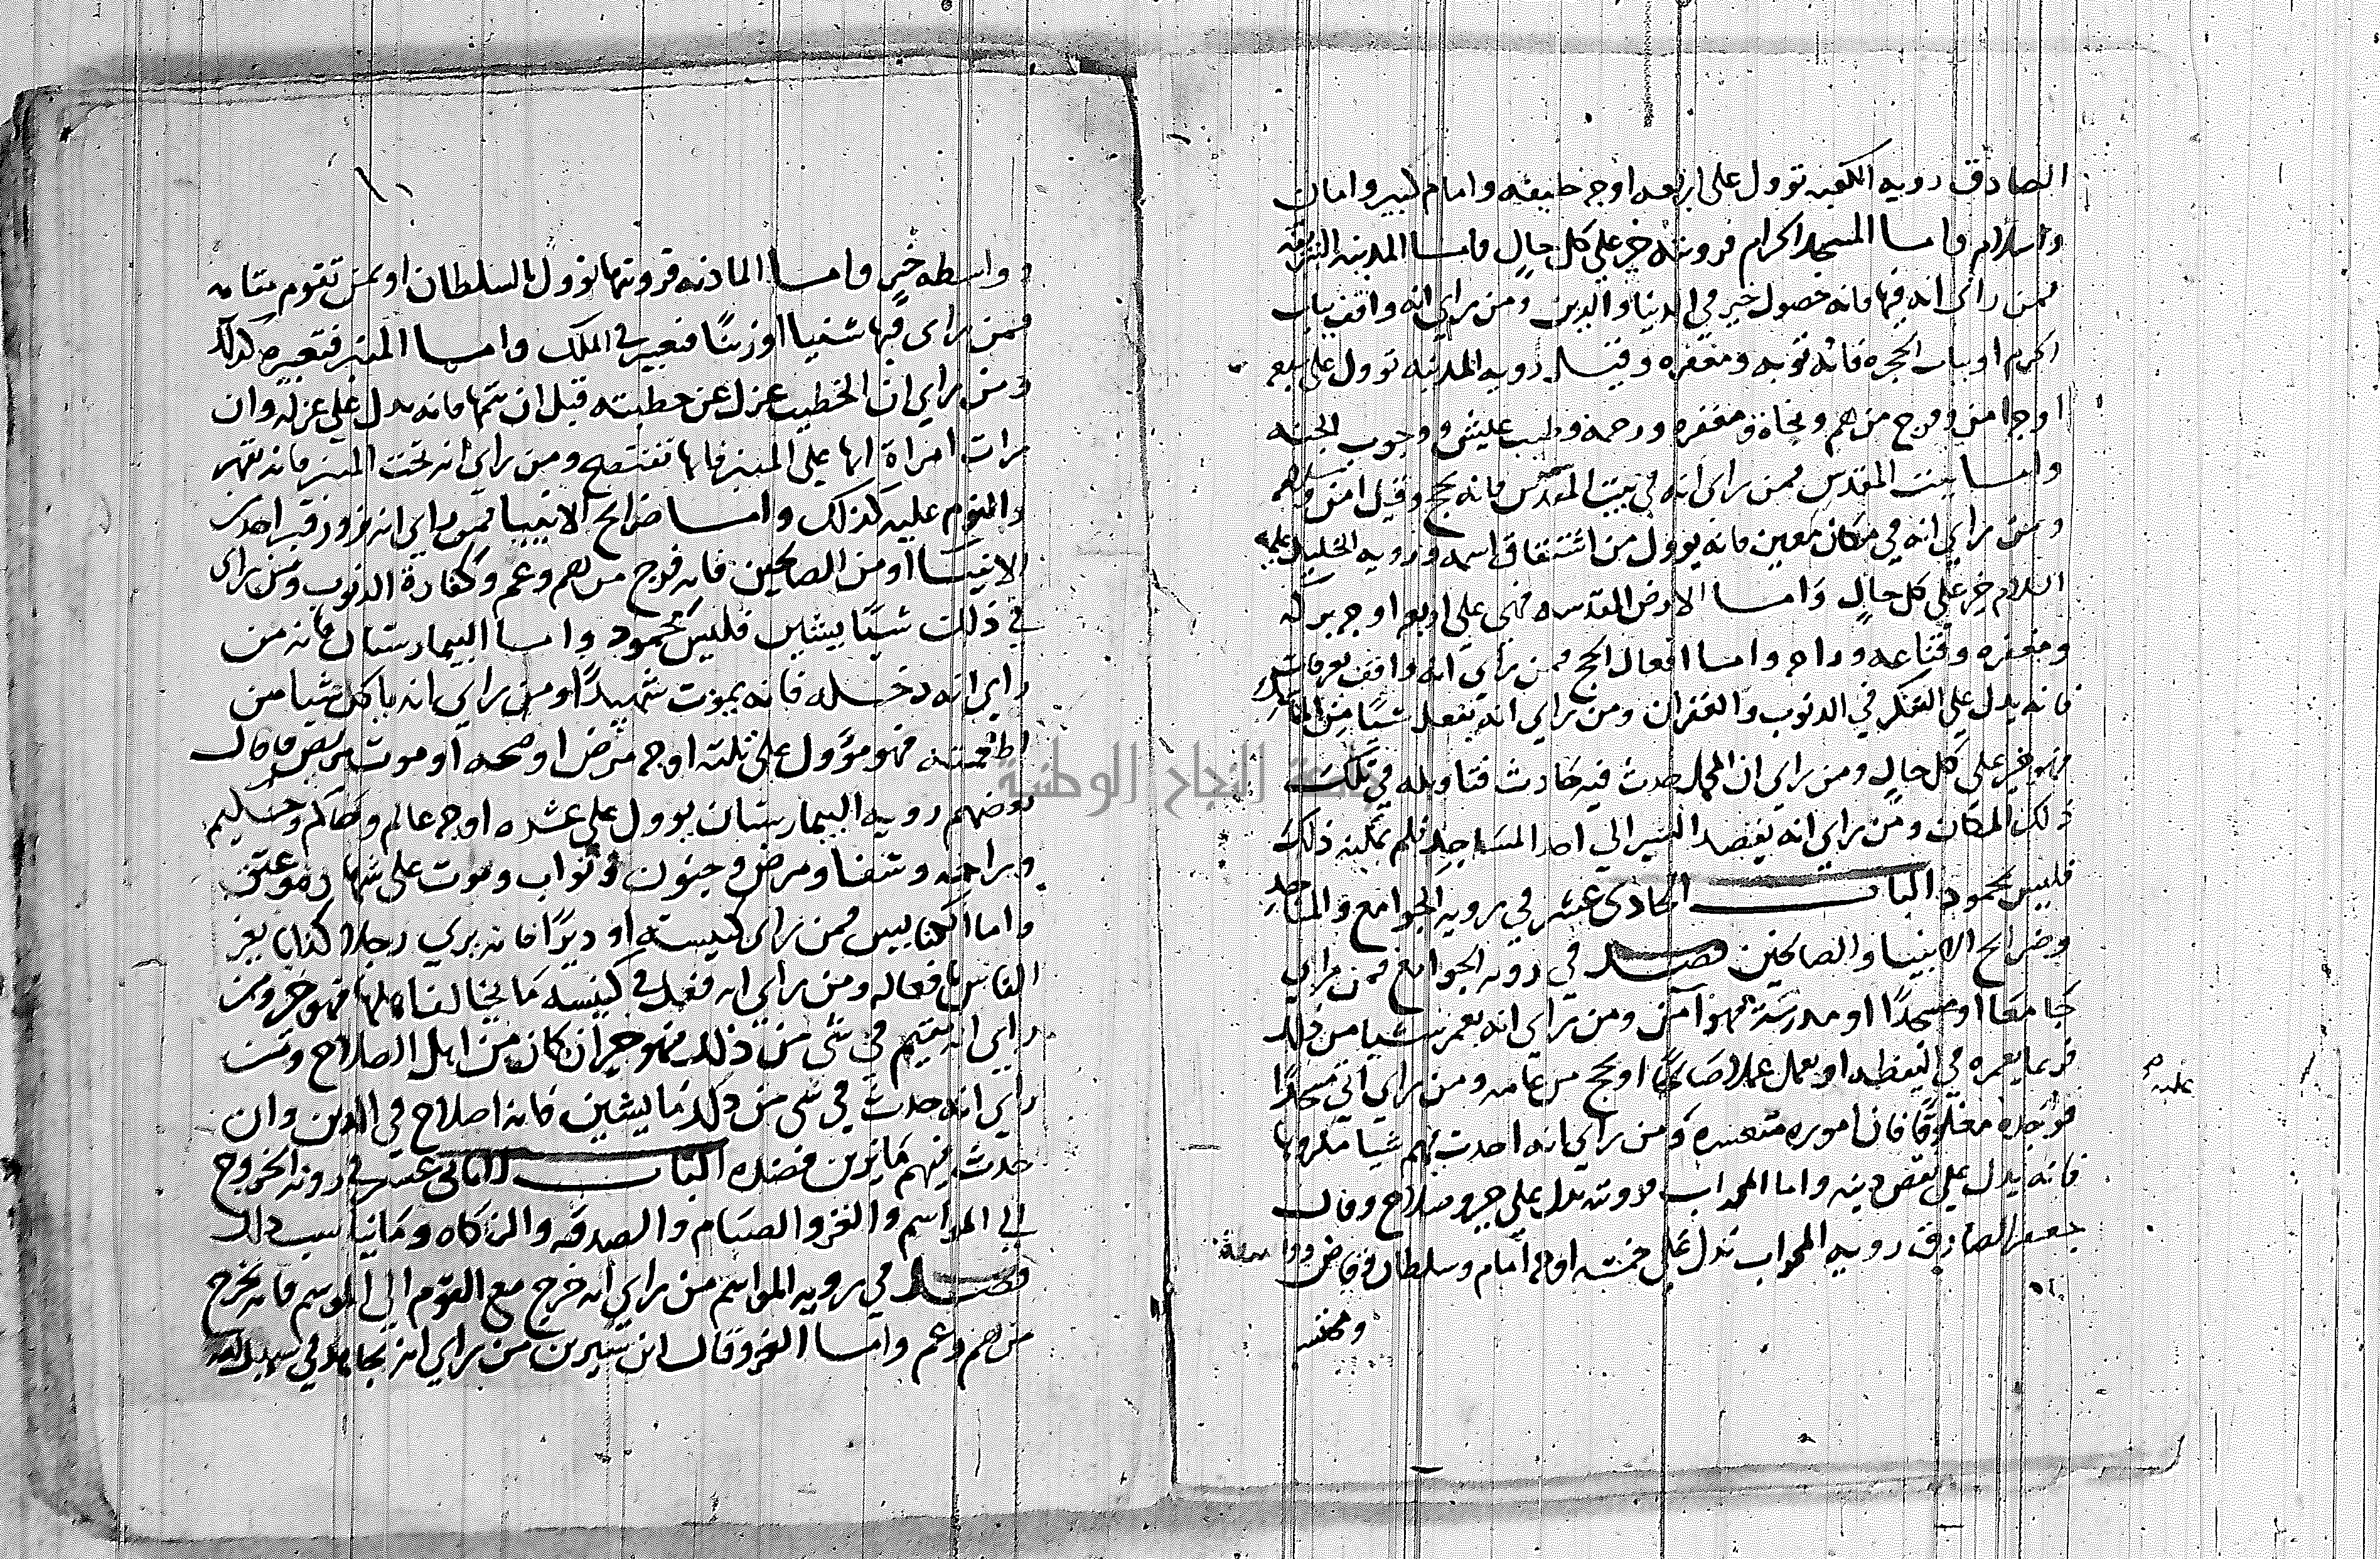 الصادق رويه الكعبه توول على اربعه اوجه خليفه وامام كبير وامان
واسلام واما المسجد الحرام فرويته خير على كل حال واما المدينه الشريفه
فمن راى انه فيها فانه حصول خير في الدنيا والدين ومن راي انه واقف بباب
الحرم او بباب الحجره فانه توبه ومغفره وقيل رويه المدينه توول على سبع
اوجه امن وفرج من هم ونجاة ومغفره ورحمه وطيب عيش ووجوب الجنه
واما بيت المقدس فمن راى انه في بيت المقدس فانه يحج وقيل امن
ومن راي انه في مكان معين فانه يوول من اشتقاق اسمه ورويه الخليل عليه
السلام خير على كل حال واما الارض المقدسه فهى على اربع اوجه بركه
ومغفره وقناعه وراحه واما افعال الحج فمن راي انه واقف بعرفات
فانه يدل علي التفكر في الذنوب والغفران ومن راي انه يفعل شيا من المناسك
فهو خير على كل حال ومن راي ان المحل حدث فيه حادث فتاويله في تلك
ذلك المكان ومن راي انه يقصد السير الي احد المساجد فلم يمكنه ذلك
فليس بمحمود الباب الحادى عشر في رويه الجوامع والمساجد
وضرايح الانبيا والصالحين فصل في رويه الجوامع فمن راي
جامعا او مسجدًا او مدرسة فهو آمن ومن راي انه يعمر شيا من ذلك
فربما يعمره في اليقظه او يعمل عملا صالحًا او يحج من عامه ومن راي انى مسجدًا
عليه
فوجده مغلوقًا فان اموره متعسره ومن راي انه احدث بهم شيا مكروها
فانه يدل علي نقص دينه واما المحراب فرويته تدل علي خير وصلاح وقال
جعفر الصادق رويه المحراب تدل علي خمسه اوجه امام وسلطان وقاض
ومحتسب
وواسطه خير واما الماذنه فرويتها توول بالسلطان او بمن تقوم مقامه
فمن راى فيها شينا او زينًا فتعبير في الملك واما المنبر فتعبيره كذلك
ومن راي ان الخطيب عزل عن خطبته قبل ان يتمها فانه يدل علي عزله وان
رات امراة انها على المنبر فانها تفتضح ومن راي انه تحت المنبر فانه تقهر
والمنوم عليه كذلك واما ضرايح الانبيا فمن راي انه يزور قبر احد من
الانبيا او من الصالحين فانه فرج من هم وغم وكفارة الذنوب ومن راى
في ذلك شيًا يشين فليس بمحمود واما البيمارستان فانه من
راي انه دخله فانه يموت شهيدًا ومن راي انه ياكل شيا من
اطعمته فهو موول على ثلثه اوجه مرض او صحه او موت مريض وقال
بعضهم رويه البيمارستان يوول علي عشره اوجه عالم وحاكم وحكيم
وبراحه وشفا ومرض وجنون وثواب وموت على شهاده وعتق
واما الكنايس فمن راى كنيسة او ديرًا فانه يري رجلا كذابا يغر
الناس بافعاله ومن راي انه فعل في كنيسه ما يخالف اهلها فهو خير ومن
راي انه يقيم في شى من ذلك فهو خير ان كان من اهل الصلاح ومن
راي انه حدث في شى من ذلك ما يشين فانه اصلاح في الدين وان
حدث فيهم ما يزين فضده الباب الثاني عشر في رويه الخروج
الي المواسم والغزو والصيام والصدقه والزكاه وما يناسب ذلك
فصل في رويه المواسم من راي انه خرج مع القوم الي الموسم فانه يخرج
من هم وغم واما الغزو قال ابن سيرين من راي انه يجاهد في سبيل الله
جامعة النجاح الوطنية